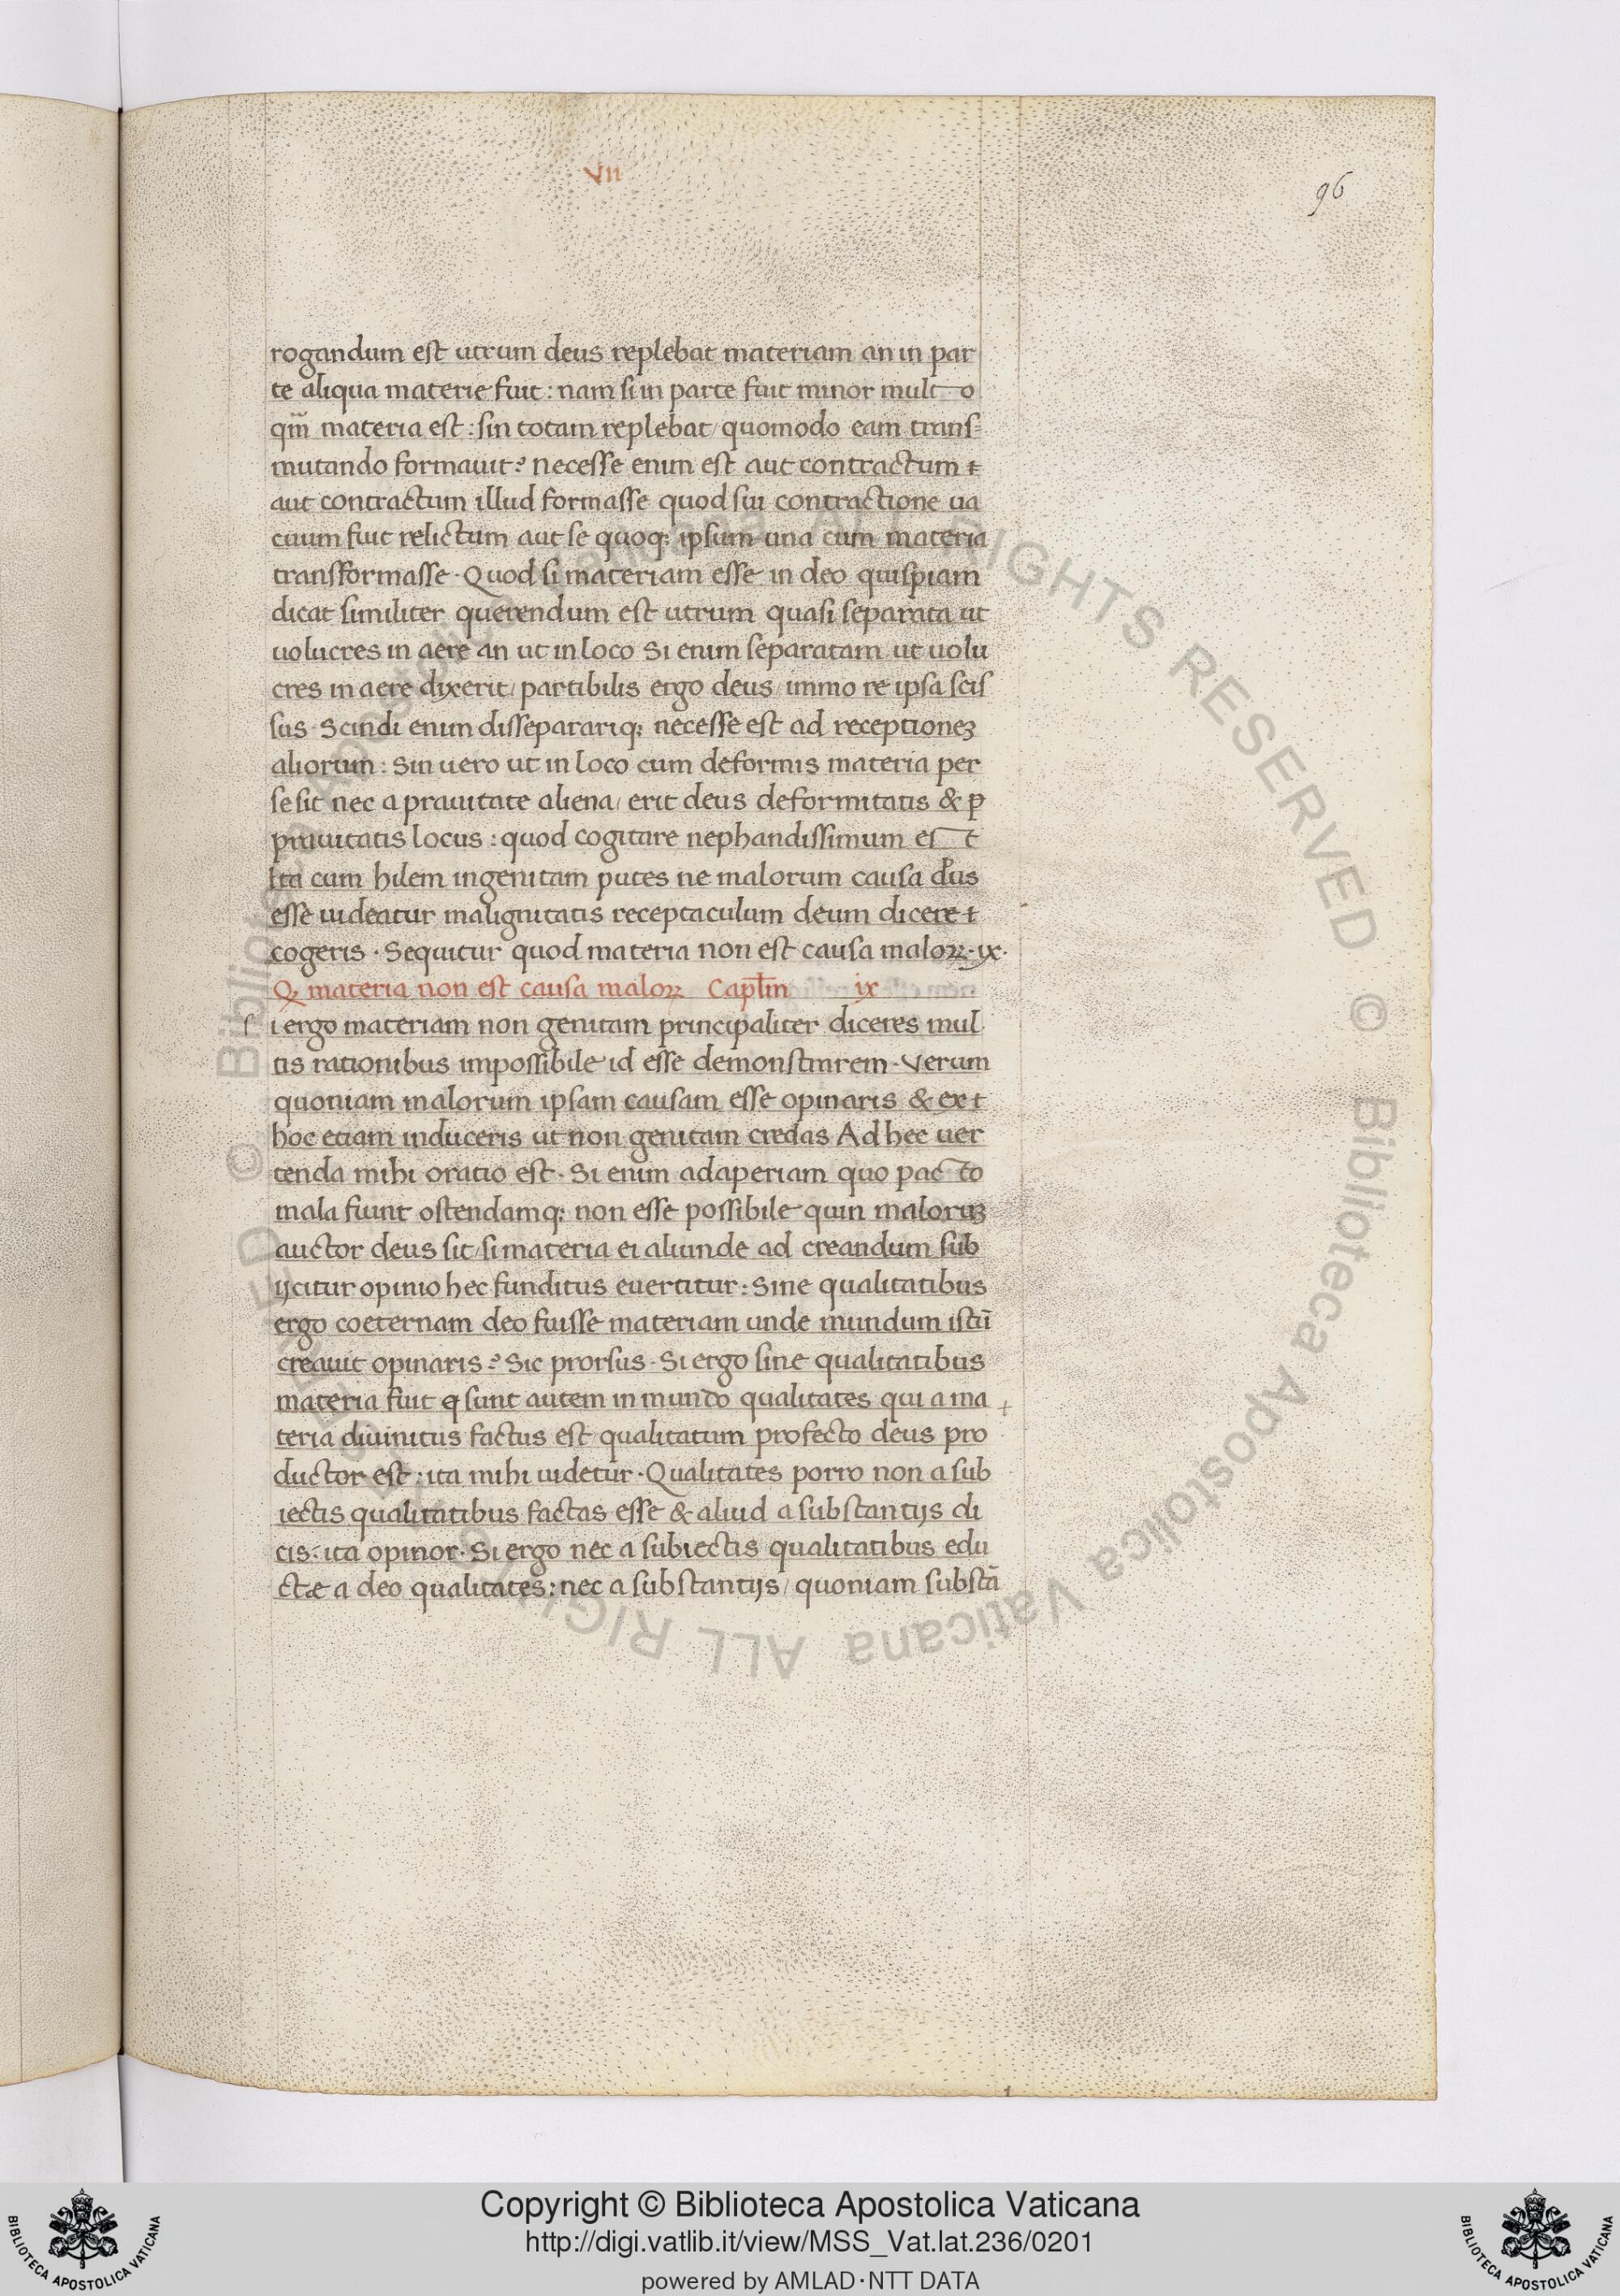 VII
96
rogandum est utrum deus replebat materiam an in par
te aliqua materie fuit: nam si in parte fuit minor multo
qm̄ materia est: sin totam replebat/ quomodo eam trans-
mutando formauit? necesse enim est aut contractum t
aut contractum illud formasse quod sui contractione ua
cuum fuit relictum aut se quoq; ipsum una cum materia
transformasse · Quod si materiam esse in deo quispiam
dicat similiter querendum est utrum quasi separata ut
uolucres in aere an ut in loco Si enim separatam ut uolu
cres in aere dixerit/ partibilis ergo deus/ immo re ipsa scis
sus · Scindi enim disseparariq; necesse est ad receptioneʒ
aliorum: Sin uero ut in loco cum deformis materia per
se sit nec a prauitate aliena/ erit deus deformitatis & ꝑ
prauitatis locus: quod cogitare nephandissimum est
Ita cum hilem ingenitam putes ne malorum causa deus
esse uideatur malignitatis receptaculum deum dicere t
cogeris · Sequitur quod materia non est causa maloꝝ · ix·
Q materia non est causa maloꝝ Capl̄m ix
s
i ergo materiam non genitam principaliter diceres mul
tis rationibus impossibile id esse demonstrarem · Verum
quoniam malorum ipsam causam esse opinaris & ex t
hoc etiam induceris ut non genitam credas Ad hec uer
tenda mihi oratio est · Si enim adaperiam quo pacto
mala fiunt ostendamq; non esse possibile quin maloruʒ
auctor deus sit/ si materia ei aliunde ad creandum sub
ijcitur opinio hec funditus euertitur: Sine qualitatibus
ergo coeternam deo fuisse materiam unde mundum istū
creauit opinaris? Sic prorsus · Si ergo sine qualitatibus
materia fuit ꝙ sunt autem in mundo qualitates qui a ma +
teria diuinitus factus est qualitatum profecto deus pro
ductor est: ita mihi uidetur · Qualitates porro non a sub
iectis qualitatibus factas esse & aliud a substantijs di
cis: ita opinor · Si ergo nec a subiectis qualitatibus edu
ctæ a deo qualitates: nec a substantijs/ quoniam substā
© Biblioteca Apostolica Vaticana ALL RIGHTS RESERVED
© Biblioteca Apostolica Vaticana ALL RIGHTS RESERVED
Copyright © Biblioteca Apostolica Vaticana
http://digi.vatlib.it/view/MSS_Vat.lat.236/0201
powered by AMLAD·NTT DATA
BIBLIOTECA APOSTOLICA VATICANA
BIBLIOTECA APOSTOLICA VATICANA